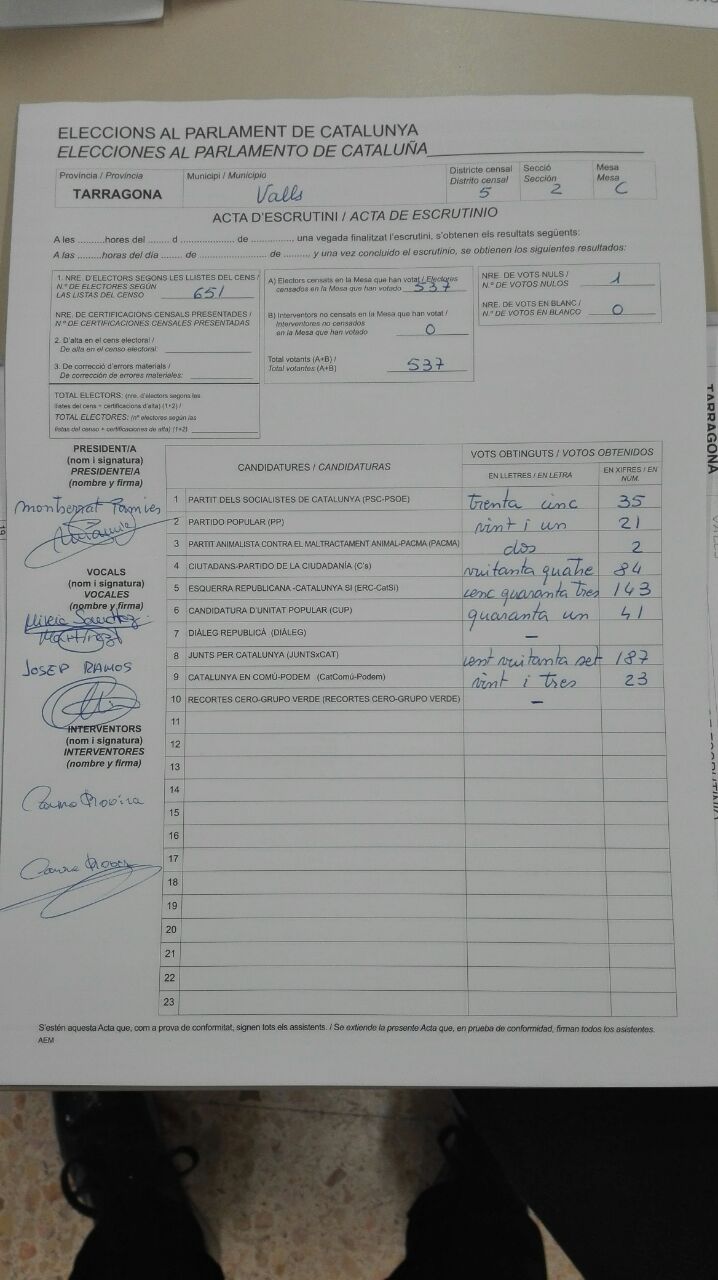 ELECCIONS AL PARLAMENT DE CATALUNYA
ELECCIONES AL PARLAMENTO DE CATALUÑA
Província / Provincia
TARRAGONA
Municipi / Municipio
Valls
Districte censal
Distrito censal
5
Secció
Sección
2
Mesa
Mesa
C
ACTA D'ESCRUTINI / ACTA DE ESCRUTINIO
A les ..........hores del ........ d ................... de ..............., una vegada finalitzat l'escrutini, s'obtenen els resultats següents:
A las ..........horas del día ....... de ........................ de ........... y una vez concluido el escrutinio, se obtienen los siguientes resultados:
1. NRE. D'ELECTORS SEGONS LES LLISTES DEL CENS /
N.º DE ELECTORES SEGÚN
LAS LISTAS DEL CENSO 651
NRE. DE CERTIFICACIONS CENSALS PRESENTADES /
N.º DE CERTIFICACIONES CENSALES PRESENTADAS
2. D'alta en el cens electoral /
De alta en el censo electoral:
3. De correcció d'errors materials /
De corrección de errores materiales:
TOTAL ELECTORS: (nre. d'electors segons les
llistes del cens + certificacions d'alta) (1+2) /
TOTAL ELECTORES: (nº electores según las
listas del censo + certificaciones de alta) (1+2)
A) Electors censats en la Mesa que han votat / Electores
censados en la Mesa que han votado 537
B) Interventors no censats en la Mesa que han votat /
Interventores no censados
en la Mesa que han votado 0
Total votants (A+B) /
Total votantes (A+B) 537
NRE. DE VOTS NULS /
N.º DE VOTOS NULOS 1
NRE. DE VOTS EN BLANC /
N.º DE VOTOS EN BLANCO 0
PRESIDENT/A
(nom i signatura)
PRESIDENTE/A
(nombre y firma)
Montserrat Pàmies
VOCALS
(nom i signatura)
VOCALES
(nombre y firma)
Mireia Sánchez
Martínez
JOSEP RAMOS
INTERVENTORS
(nom i signatura)
INTERVENTORES
(nombre y firma)
CANDIDATURES / CANDIDATURAS
VOTS OBTINGUTS / VOTOS OBTENIDOS
EN LLETRES / EN LETRA
EN XIFRES / EN NÚM.
1 PARTIT DELS SOCIALISTES DE CATALUNYA (PSC-PSOE) trenta cinc 35
2 PARTIDO POPULAR (PP) vint i un 21
3 PARTIT ANIMALISTA CONTRA EL MALTRACTAMENT ANIMAL-PACMA (PACMA) dos 2
4 CIUTADANS-PARTIDO DE LA CIUDADANÍA (C's) vuitanta quatre 84
5 ESQUERRA REPUBLICANA -CATALUNYA SÍ (ERC-CatSí) cenc quaranta tres 143
6 CANDIDATURA D'UNITAT POPULAR (CUP) quaranta un 41
7 DIÀLEG REPUBLICÀ (DIÀLEG) –
8 JUNTS PER CATALUNYA (JUNTSxCAT) cent vuitanta set 187
9 CATALUNYA EN COMÚ-PODEM (CatComú-Podem) vint i tres 23
10 RECORTES CERO-GRUPO VERDE (RECORTES CERO-GRUPO VERDE) –
11
12
13
14
15
16
17
18
19
20
21
22
23
S'estén aquesta Acta que, com a prova de conformitat, signen tots els assistents. / Se extiende la presente Acta que, en prueba de conformidad, firman todos los asistentes.
AEM
TARRAGONA